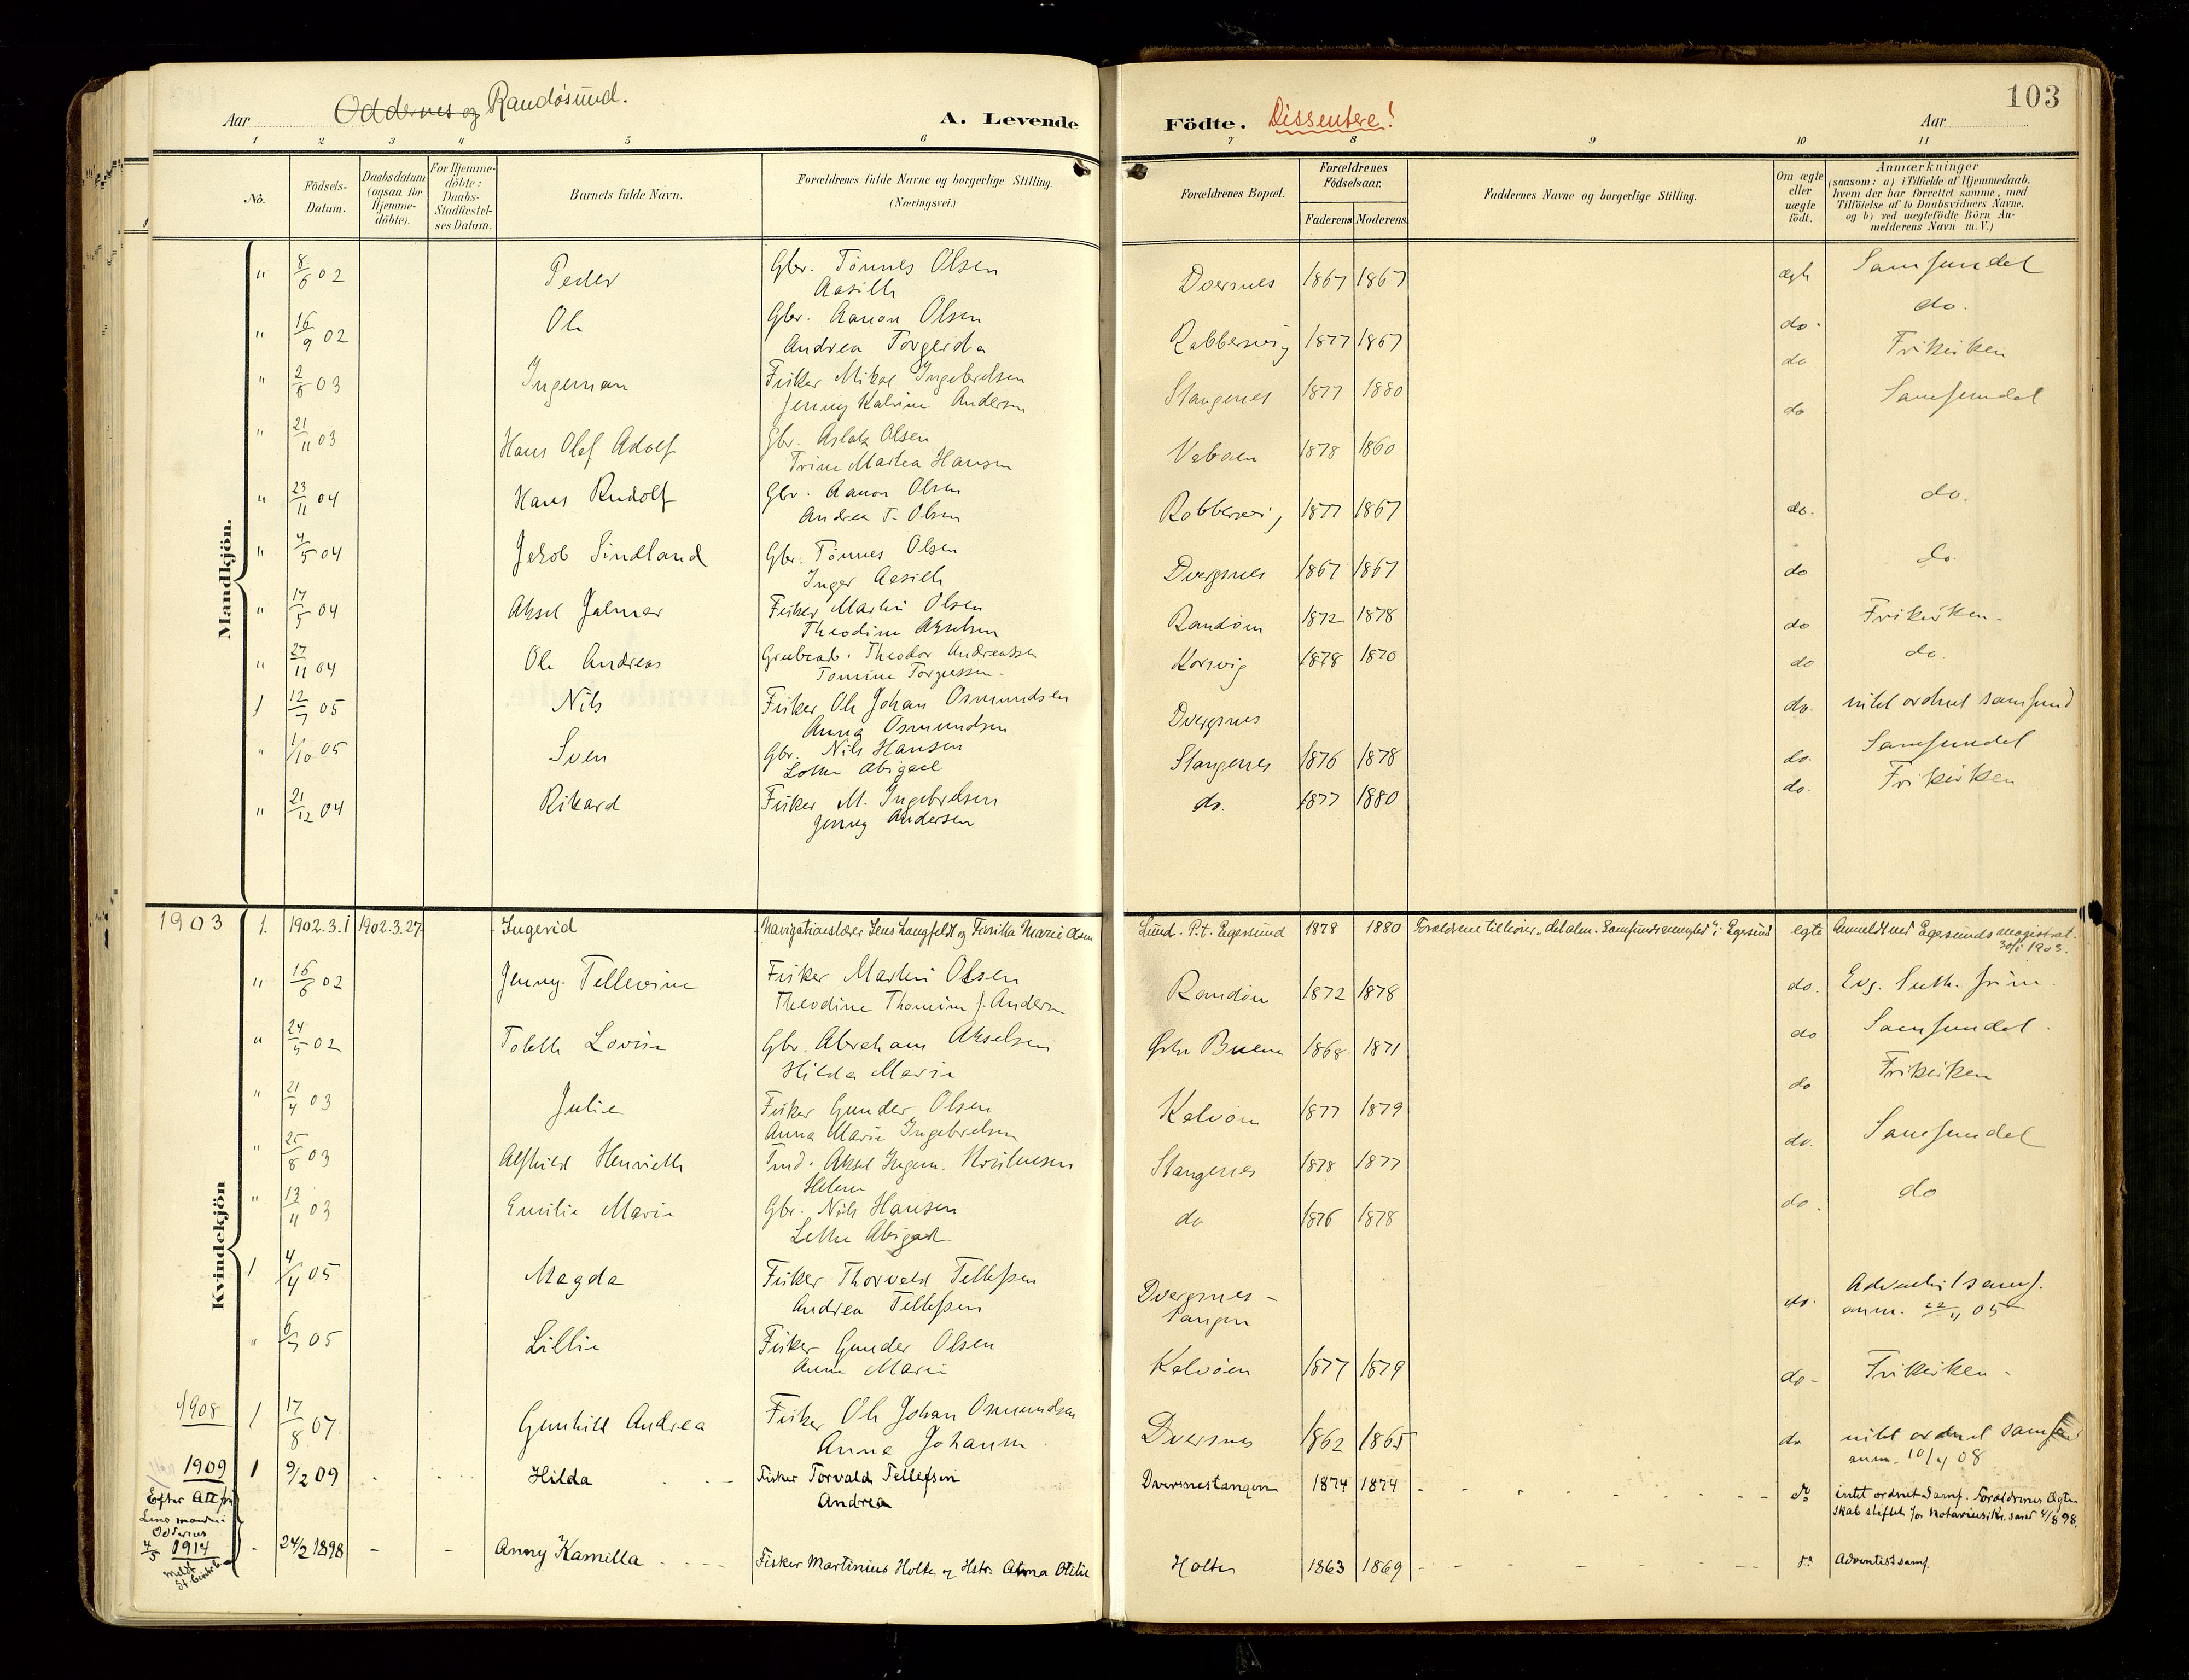 Oddernes og Randøsund.
Aar
A. Levende
Födte.
Dissentere!
Aar
103
1 2 3 4 5 6 7 8 9 10 11
No.
Födsels-Datum.
Daabsdatum (ogsaa for Hjemme-döbte).
For Hjemme-döbte: Daabs-Stadfæstel-ses Datum.
Barnets fulde Navn.
Forældrenes fulde Navne og borgerlige Stilling.
(Næringsvei.)
Forældrenes Bopæl.
Forældrenes Födselsaar.
Faderens Moderens
Faddernes Navne og borgerlige Stilling.
Om ægte eller uægte födt.
Anmærkninger
(saasom: a) i Tilfælde af Hjemmedaab. hvem der har forrettet samme, med Tilföielse af to Daabsvidners Navne. og b) ved uægtefödte Börn Anmelderens Navn m.V.)
Mandkjön.
" 8/6 02 Peder Gbr. Tønnes Olsen Dversnes 1867 1867 ægte Samfundet
Aasille
" 16/9 02 Ole Gbr. Aanon Olsen Robbersvig 1877 1867 do. do.
Andrea Torgerda
" 2/6 03 Ingeman Fisker Mikal Ingebretsen Stangenes 1877 1880 do Frikirken
Jenny Katrine Andersen
" 21/11 03 Hans Olaf Adolf Gbr. Aslak Olsen 1878 1860 do Samfundet
Trine Martea Hansen
" 23/11 04 Hans Rudolf Gbr. Aanon Olsen Robbersvig 1877 1867 do. do.
Andrea T. Olsen
" 4/5 04 Jakob Sindland Gbr. Tønnes Olsen Dvergsnes 1867 1867 do do.
Inger Aasille
" 17/5 04 Aksel Jalmar Fisker Martin Olsen Randøen 1872 1878 do Frikirken.
Theodine Akselsen
" 27/11 04 Ole Andreas Theodor Andreassen Korsvig 1878 1870 do do.
Tomine Torgussen.
1 12/7 05 Nils Fisker Ole Johan Osmundsen Dvergsnes do. intet ordnet samfund
Anna Osmundsen
" 1/10 05 Sven Gbr. Nils Hansen Stangenes 1876 1878 do. Samfundet
Lotte Abigael
" 21/12 04 Rikard Fisker M. Ingebretsen do. 1877 1880 do. Frikirken
Jenny Andersen
Kvindekjön
1903 1. 1902.3.1 1902.3.27 Ingerid Navigationslærer Jens Langfeldt og Finrika Marie Olsen Lund. P.t. Egersund 1878 1880 Forældrene tilhører "det alm. Samfundsmenighed" i Egersund egte Anmeldt ved Egersunds magistrat.
30/1 1903.
" 16/6 02 Jenny Tellevine Fisker Martin Olsen Randøen 1872 1878 do. Evg. Luth. frim.
Theodine Thomine f. Andersen
" 24/5 02 Tolette Lovise Gbr. Abraham Akselsen 1868 1871 do Samfundet.
Hilda Marie
" 21/4 03 Julie Fisker Gunder Olsen Kalvøen 1877 1879 do Frikirken
Anna Marie Ingebretsen
" 25/8 03 Alfhild Henriette Aksel Ingem. Stangenes 1878 1877 do. Samfundet
Helene
" 13/11 03 Emilie Marie Gbr. Nils Hansen do 1876 1878 do. do
Lotte Abigael
1 4/4 05 Magda Fisker Thorvald Tellefsen Dvergsnes- do. Adventistsamf.
Andrea Tellefsen tangen anm. 22/11 05
" 6/7 05 Lillie Fisker Gunder Olsen Kalvøen 1877 1879 do- Frikirken.
Anna Marie
1908 1 17/8 07. Gunhild Andrea Fisker Ole Johan Osmundsen Dversnes 1862 1865 do intet ordnet samfund
Anna Johanne anm. 10/4 08
1909 1 9/2 09 Hilda Fisker Torvald Tellefsen Dversnestangen 1874 1874 do intet ordnet Samf. Forældrenes Ægte-
Andrea skab stiftet for Notarius i Kr.sand 4/8 98.
Efter Att. fra
Lensmanden i
Oddernes
4/5 1914 24/2 1898 Anny Kamilla Fisker Martinius Holte og Hstr. Alma Otilie Holte 1863 1869 do Adventistsamf.
meldt